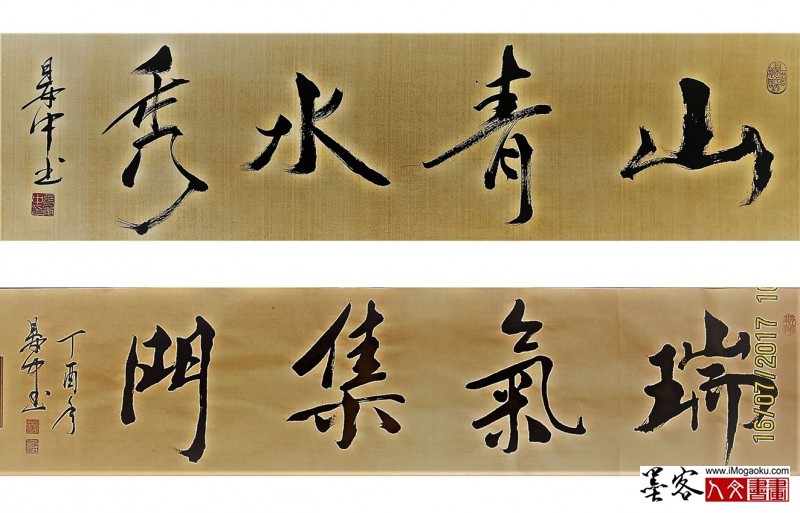 山青水秀
中书
瑞氣集門
丁酉年
中书
16/07/2017 10
墨客
www.iMogaoku.com
人文書畫